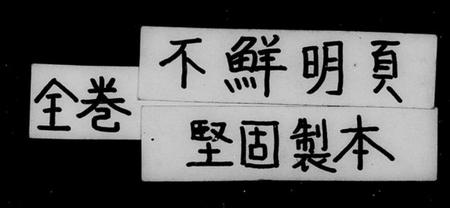 全巻
不鮮明頁
堅固製本